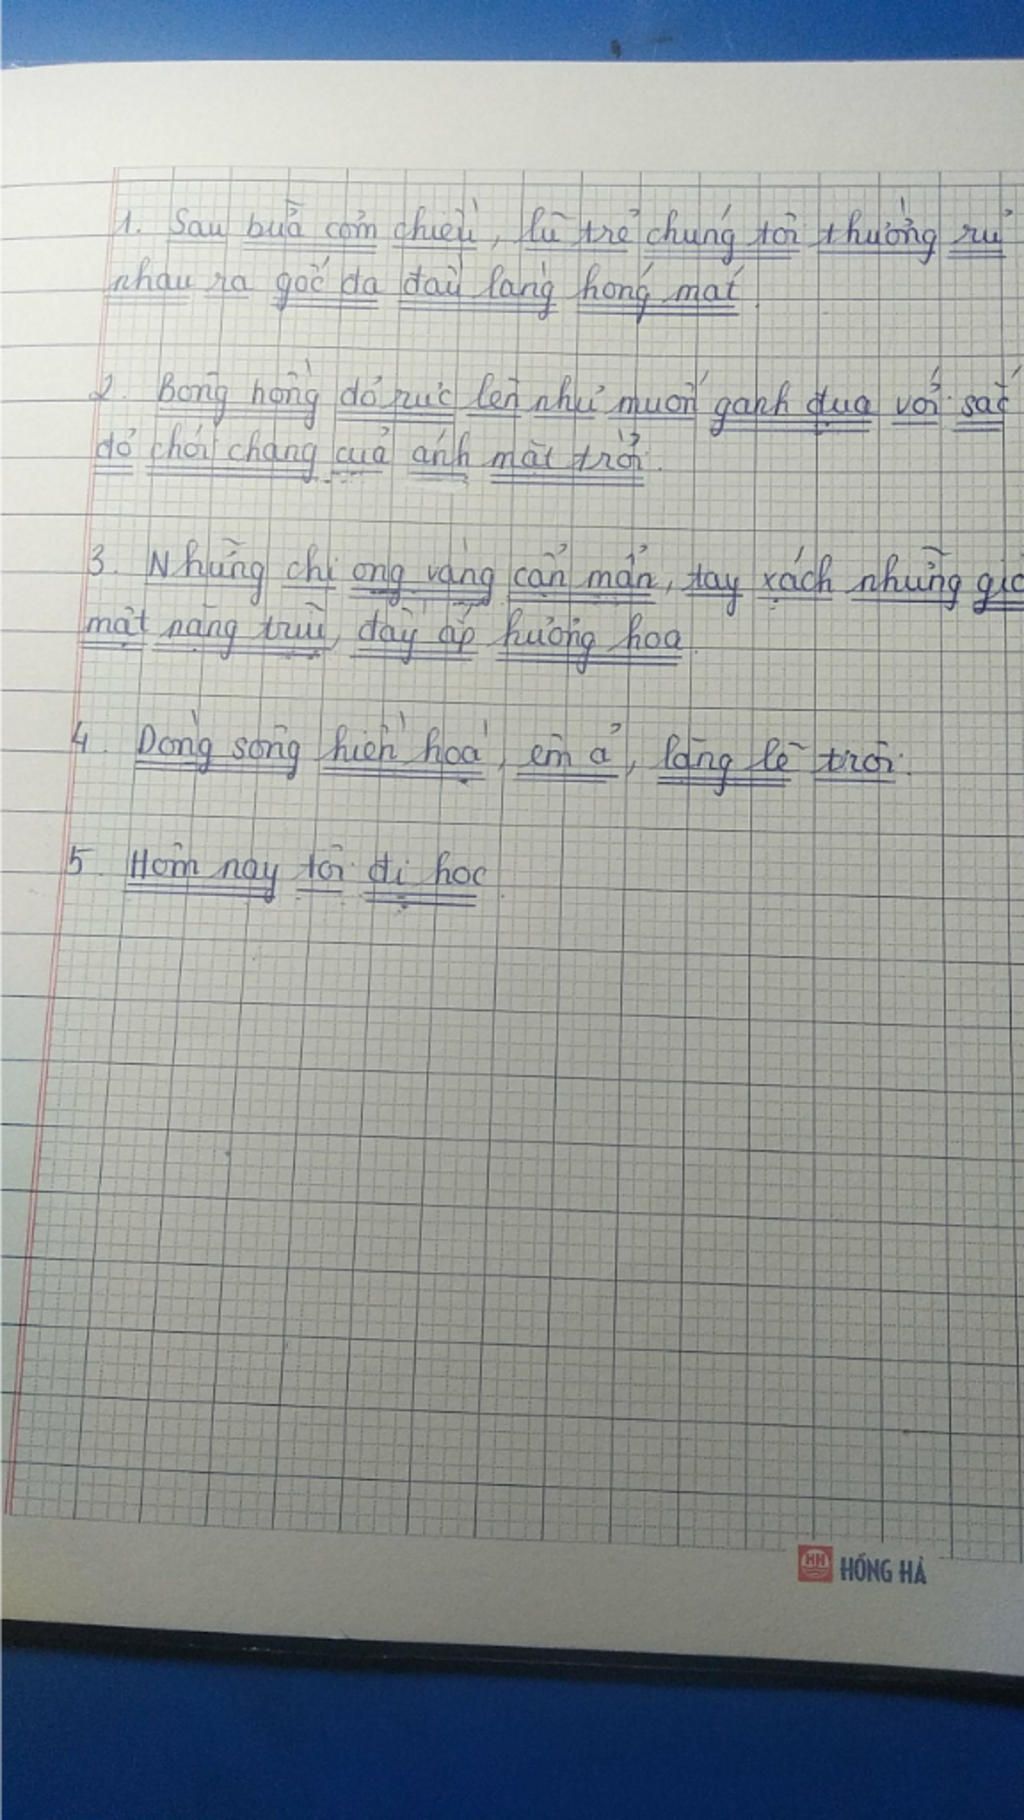 1. Sau bữa cơm chiều, lũ trẻ chúng tôi thường rủ
nhau ra gốc đa đầu làng hóng mát.
2. Bông hồng đỏ rực lên như muốn ganh đua với sắc
đỏ chói chang của ánh mặt trời.
3. Những chị ong vàng cần mẫn, tay xách những giỏ
mật nặng trĩu, đầy ắp hương hoa.
4. Dòng sông hiền hoà, êm ả, lặng lẽ trôi.
5. Hôm nay tôi đi học.
HH HỒNG HÀ